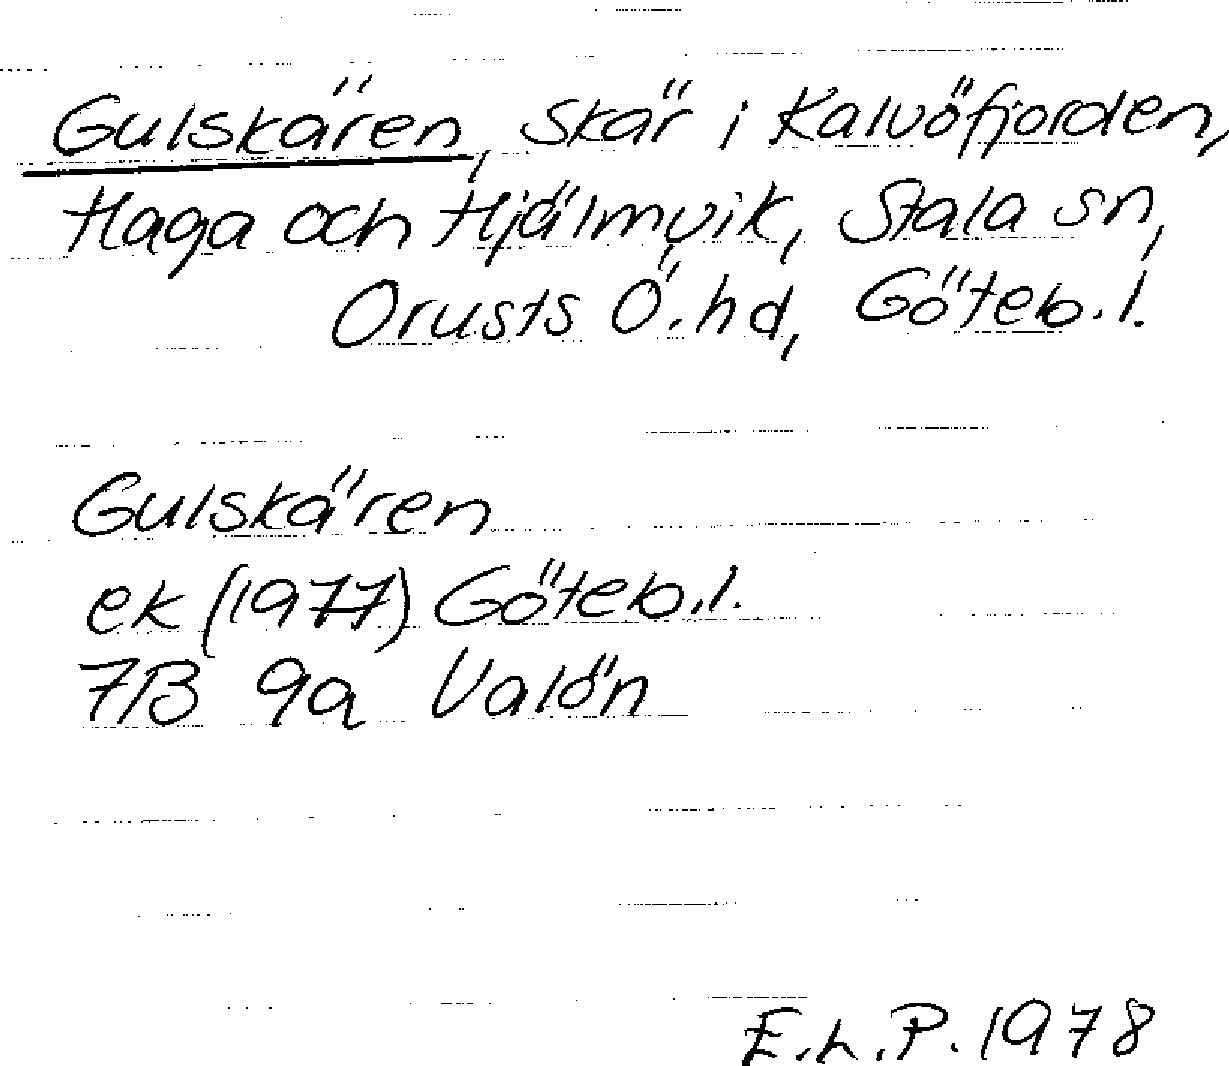 Gulskären, skär i Kalvöfjorden,
Haga och Hjälmvik, Stala sn,
Orusts Ö. hd, Göteb. l.
Gulskären
ek (1977) Göteb. l.
7B 9a Valön
E. L. P. 1978